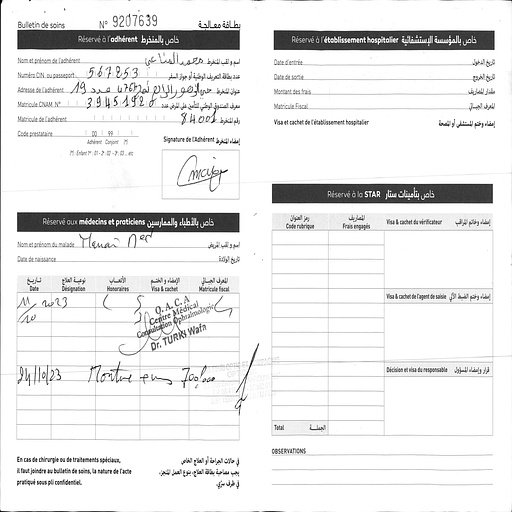 Bulletin de soins N° 9207639 بطاقة معالجة
Réservé à l'adhérent خاص بالمنخرط
Nom et prénom de l'adhérent محمد المناعي اسم و لقب المنخرط
Numéro CIN, ou passeport 567253 عدد بطاقة التعريف الوطنية أو جواز السفر
Adresse de l'adhérent 19 عنوان المنخرط
Matricule CNAM. N° معرف الصندوق الوطني للتأمين على المرض عدد
Matricule de l'adhérent 84001 رقم المنخرط
Code prestataire 00 99
Adhérent Conjoint
Signature de l'Adhérent إمضاء المنخرط
Réservé aux médecins et praticiens خاص بالأطباء والممارسين
Nom et prénom du malade Manai Med اسم و لقب المريض
Date de naissance تاريخ الولادة
تاريخ نوعية العلاج الأتعاب الإمضاء و الختم المعرف الجبائي
Date Désignation Honoraires Visa & cachet Matricule fiscal
11/10 2023
O.A.C.A
Centre Médical
Consultation Ophtalmologie
Dr. TURKI Wafa
24/10/23 Monture 700,000
En cas de chirurgie ou de traitements spéciaux,
il faut joindre au bulletin de soins, la nature de l'acte
pratiqué sous pli confidentiel.
في حالات الجراحة أو العلاج الخاص
يجب مصاحبة بطاقة العلاج، بنوع العمل المنجز،
في ظرف سري.
Réservé à l'établissement hospitalier خاص بالمؤسسة الإستشفائية
Date d'entrée تاريخ الدخول
Date de sortie تاريخ الخروج
Montant des frais مقدار المصاريف
Matricule Fiscal المعرف الجبائي
Visa et cachet de l'établissement hospitalier إمضاء وختم المستشفى أو المصحة
Réservé à la STAR خاص بتأمينات ستار
رمز العنوان المصاريف
Code rubrique Frais engagés
Visa & cachet du vérificateur إمضاء وختم المراقب
Visa & cachet de l'agent de saisie إمضاء وختم الضبط الآلي
Décision et visa du responsable قرار وإمضاء المسؤول
Total الجملة
OBSERVATIONS